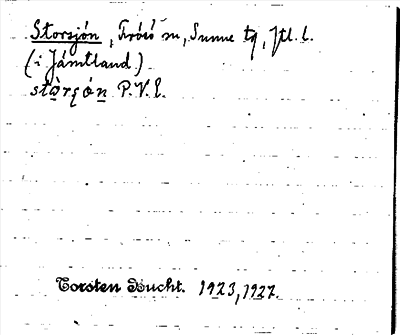 Storsjön, Frösö sn, Sunne tg, Jtl. l.
(i Jämtland)
stòrʂǿn P.V.l.
Torsten Bucht. 1923, 1927.